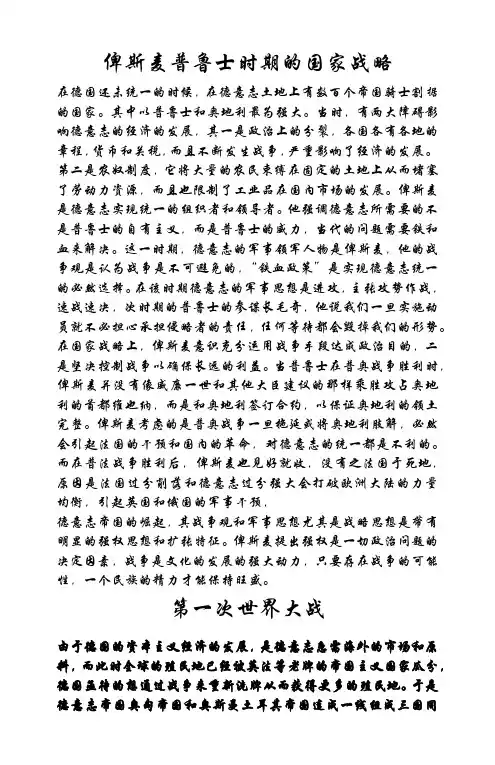 俾斯麦普鲁士时期的国家战略
在德国还未统一的时候，在德意志土地上有数百个帝国骑士割据
的国家。其中以普鲁士和奥地利最为强大。当时，有两大障碍影
响德意志的经济的发展，其一是政治上的分裂，各国各有各地的
章程，货币和关税，而且不断发生战争，严重影响了经济的发展。
第二是农奴制度，它将大量的农民束缚在固定的土地上从而堵塞
了劳动力资源，而且也限制了工业品在国内市场的发展。俾斯麦
是德意志实现统一的组织者和领导者。他强调德意志所需要的不
是普鲁士的自有主义，而是普鲁士的威力，当代的问题需要铁和
血来解决。这一时期，德意志的军事领军人物是俾斯麦，他的战
争观是认为战争是不可避免的，“铁血政策”是实现德意志统一
的必然选择。在该时期德意志的军事思想是进攻，主张攻势作战，
速战速决，次时期的普鲁士的参谋长毛奇，他说我们一旦实施动
员就不必担心承担侵略者的责任，任何等待都会毁掉我们的形势。
在国家战略上，俾斯麦意识充分运用战争手段达成政治目的，二
是坚决控制战争以确保长远的利益。当普鲁士在普奥战争胜利时，
俾斯麦并没有像威廉一世和其他大臣建议的那样乘胜攻占奥地
利的首都维也纳，而是和奥地利签订合约，以保证奥地利的领土
完整。俾斯麦考虑的是普奥战争一旦拖延或将奥地利肢解，必然
会引起法国的干预和国内的革命，对德意志的统一都是不利的。
而在普法战争胜利后，俾斯麦也见好就收，没有之法国于死地，
原因是法国过分削落和德意志过分强大会打破欧洲大陆的力量
均衡，引起英国和俄国的军事干预，
德意志帝国的崛起，其战争观和军事思想尤其是战略思想是带有
明显的强权思想和扩张特征。俾斯麦提出强权是一切政治问题的
决定因素，战争是文化的发展的强大动力，只要存在战争的可能
性，一个民族的精力才能保持旺盛。
第一次世界大战
由于德国的资本主义经济的发展，是德意志急需海外的市场和原
料，而此时全球的殖民地已经被英法等老牌的帝国主义国家瓜分，
德国孟待的想通过战争来重新洗牌从而获得更多的殖民地。于是
德意志帝国奥匈帝国和奥斯曼土耳其帝国连成一线组成三国同